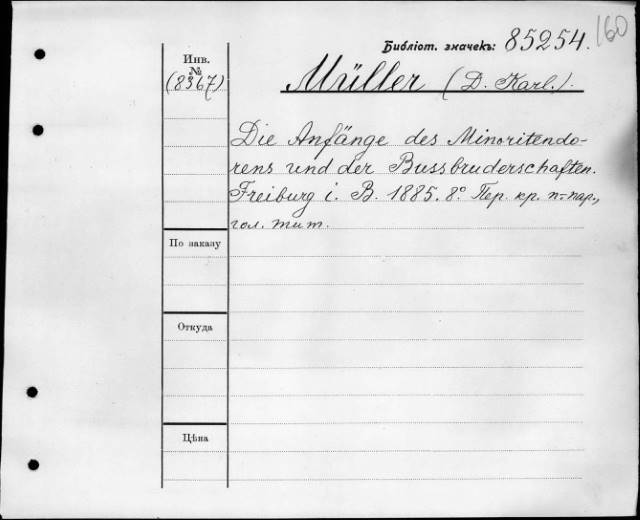 160
Библіот. значекъ: 85254.
Инв.
№
(8367)
Müller (D. Karl.).
Die Anfänge des Minoritendo-
rens und der Bussbruderschaften.
Freiburg i. B. 1885. 8° Пер. кр. п.-пар.,
гол. тит.
По заказу
Откуда
Цѣна